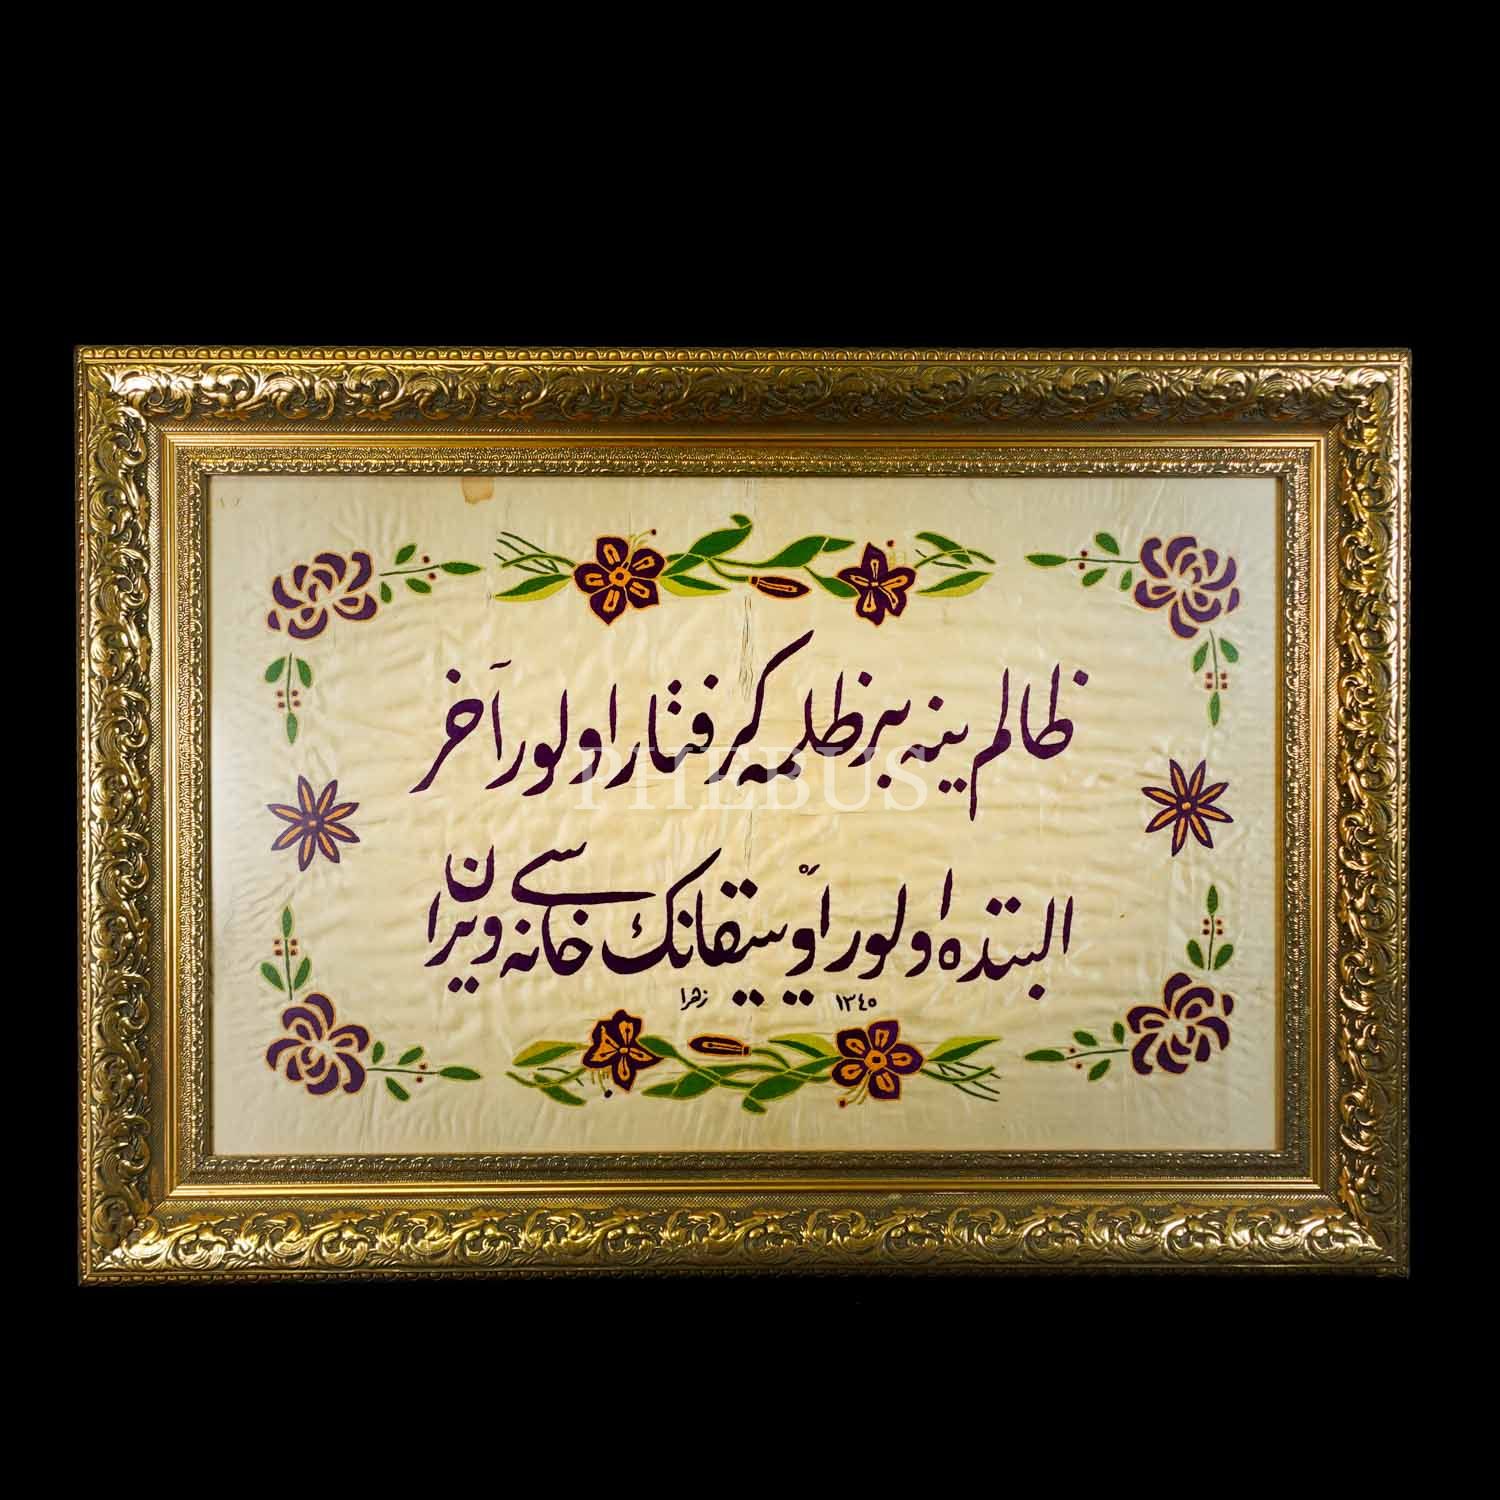 ظالم ينه بر ظلمه گرفتار اولور آخر
البته اولور او ييقانك خانه سى ويران
١٣٤٥ زهرا
PHEBUS